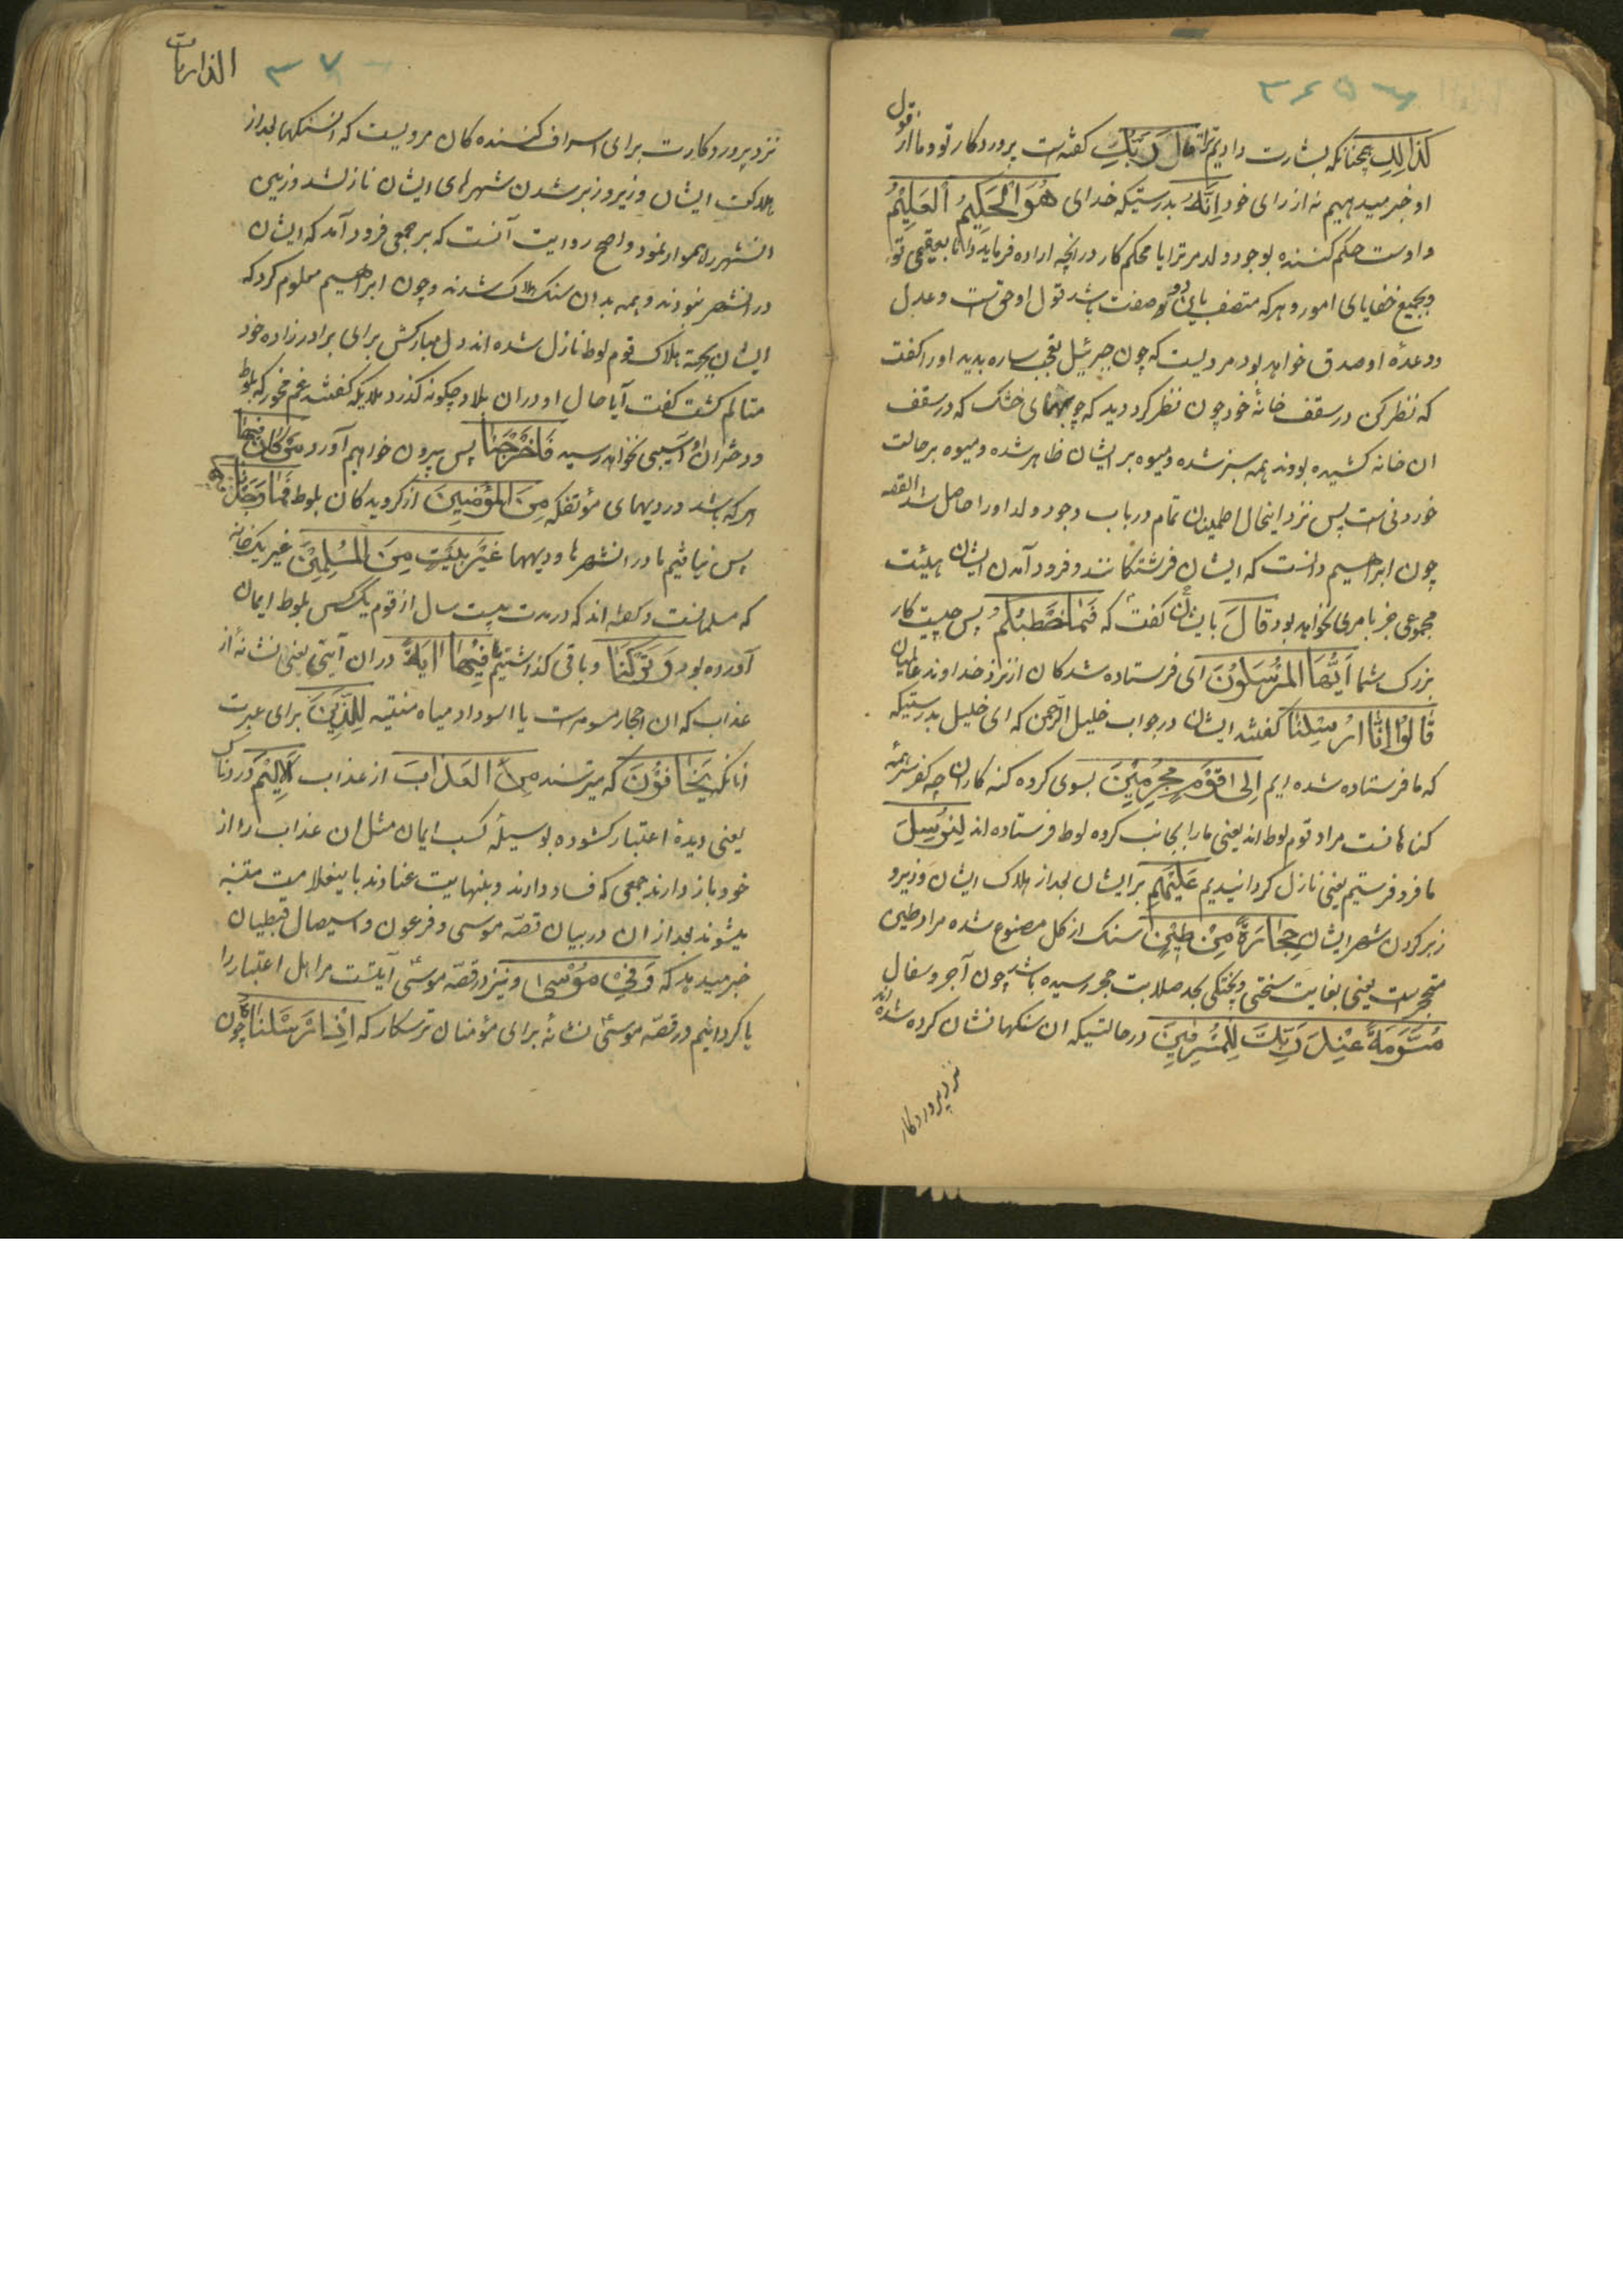 کَذٰلِكِ همچنانکه بشارت دادیم ترا قَالَ رَبُّكِ کفته است پروردکار تو و ما از قول
او خبر میدهیم نه از رای خود اِنَّهُ بدرستیکه خدای هُوَ الْحَکِیْمُ الْعَلِیْمُ
و اوست حکم کننده بوجود ولد مر ترا یا محکم کار در انچه اراده فرماید و دانا بعقیمی تو
و بجمیع خفایای امور و هرکه متصف باین دو صفت باشد قول او حق است و عدل
و وعدهٔ او صدق خواهد بود مرویست که چون جبرئیل تعجب ساره بدید او را کفت
که نظر کن در سقف خانهٔ خود چون نظر کرد دید که چوبهای خشک که در سقف
ان خانه کشیده بودند همه سبز شده و میوه بر ایشان ظاهر شده و میوه بر حالت
خوردنی است پس نزد اینحال اطمینان تمام در باب وجود ولد او را حاصل شد القصه
چون ابراهیم دانست که ایشان فرشتکانند و فرود آمدن ایشان بهیئت
مجموعی جز بامری نخواهد بود قَالَ بایشان کفت که فَمَا خَطْبُکُمْ پس چیست کار
بزرک شما اَیُّهَا الْمُرْسَلُوْنَ ای فرستاده شدکان از نزد خداوند عالمیان
قَالُوْا اِنَّا اُرْسِلْنَا کفتند ایشان در جواب خلیل الرحمن که ای خلیل بدرستیکه
که ما فرستاده شده ایم اِلٰی قَوْمٍ مُجْرِمِیْنَ بسوی کروه کنه کاران چه کفر سرآمده
کناهانست مراد قوم لوط اند یعنی ما را بجانب کروه لوط فرستاده اند لِنُرْسِلَ
ما فرو فرستیم یعنی نازل کردانیدیم عَلَیْهِمْ بر ایشان بعد از هلاک ایشان و زیر و
زبر کردن شهر ایشان حِجَارَةً مِنْ طِیْنٍ سنک از کل مصنوع شده مراد طین
متحجر است یعنی بغایت سختی و پختکی بحد صلابت حجر رسیده باشد چون آجر و سفال
مُسَوَّمَةً عِنْدَ رَبِّكَ لِلْمُسْرِفِیْنَ در حالتیکه ان سنکها نشان کرده شده اند
نزد پروردکار
الذاریات
نزد پروردکارت برای اسراف کننده کان مرویست که انسنکها بعد از
هلاکت ایشان و زیر و زبر شدن شهرهای ایشان نازلشد و زمین
انشهر را هموار نمود و اصح روایت آنست که بر جمعی فرود آمد که ایشان
در انشهر نبودند و همه بدان سنک هلاک شدند و چون ابراهیم معلوم کرد که
ایشان بجهة هلاک قوم لوط نازل شده اند دل مبارکش برای برادر زاده خود
متالم کشت کفت آیا حال او در ان بلاد چکونه کذرد ملایکه کفتند غم مخور که بلوط
و دختران او آسیبی نخواهد رسید فَاَخْرَجْنَا پس بیرون خواهیم آورد مَنْ کَانَ فِیْهَا
هرکه باشد در دیهای مؤتفکه مِنَ الْمُؤْمِنِیْنَ از کرویدکان بلوط فَمَا وَجَدْنَا فِیْهَا
پس نیافتیم ما در انشهرها و دیهها غَیْرَ بَیْتٍ مِنَ الْمُسْلِمِیْنَ غیر یک خانه
که مسلمانست و کفته اند که در مدت بیست سال از قوم یک کس بلوط ایمان
آورده بود وَ تَرَکْنَا و باقی کذاشتیم فِیْهَا اٰیَةً در ان آیتی یعنی نشانهٔ از
عذاب که ان احجار مسومه است یا اسوداد میاه منتنه لِلَّذِیْنَ برای عبرت
آنانکه یَخَافُوْنَ که میترسند مِنَ الْعَذَابَ از عذاب الْاَلِیْمَ دردناک
یعنی دیدهٔ اعتبار کشوده بوسیلهٔ کسب ایمان مثل ان عذاب را از
خود باز دارند جمعی که فساد دارند و بنهایت عنادند باینعلامت متنبه
میشوند بعد از ان در بیان قصّه موسی و فرعون و استیصال قبطیان
خبر میدهد که وَفِیْ مُوْسٰی و نیز در قصّه موسیٰ آیتست مر اهل اعتبار را
یا کردانیم در قصّه موسیٰ نشانهٔ برای مؤمنان ترسکار که اِذْ اَرْسَلْنَاهُ چون